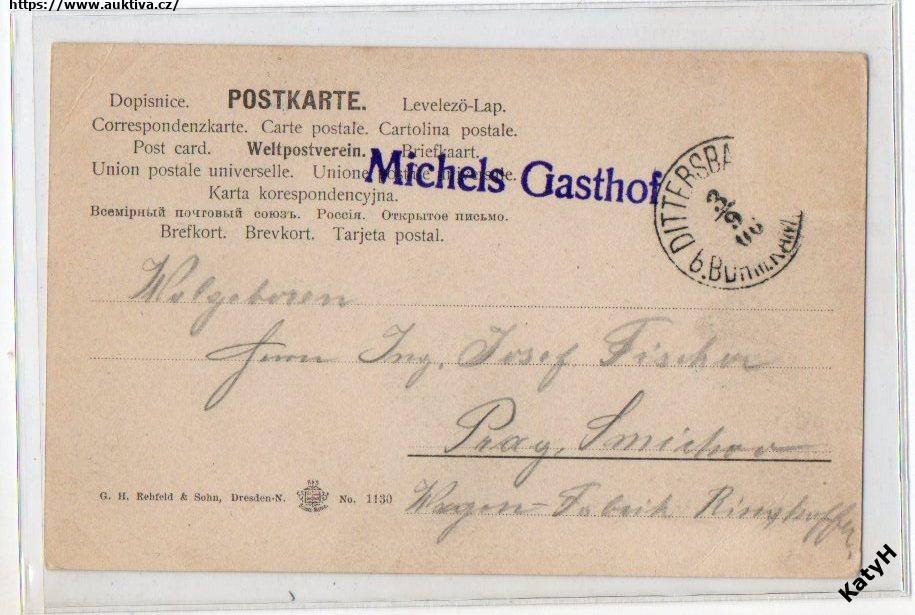 https://www.auktiva.cz/
Dopisnice. POSTKARTE. Levelező-Lap.
Correspondenzkarte. Carte postale. Cartolina postale.
Post card. Weltpostverein. Briefkaart.
Union postale universelle. Unione postale universale.
Karta korespondencyjna.
Всемірный почтовый союзъ. Россія. Открытое письмо.
Brefkort. Brevkort. Tarjeta postal.
Michels Gasthof
DITTERSBA
3/9 00
b. BÖHM. KAM
Wolgeboren
Herrn Ing. Josef Fischer
Prag, Smichov
Wagon-Fabrik Ringhoffer.
G. H. Rehfeld & Sohn, Dresden-N. No. 1130
KatyH